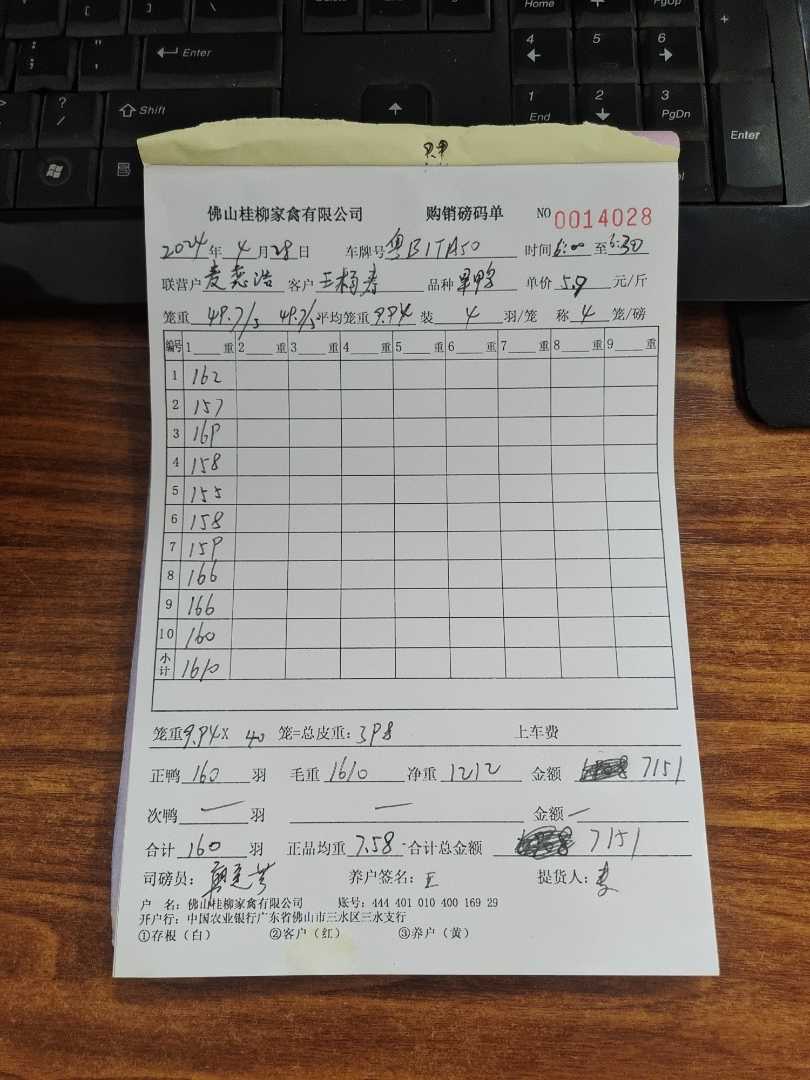 Home
PgUp
Enter
4
5
6
? /
Shift
1 End
2
3 PgDn
Enter
佛山桂柳家禽有限公司 购销磅码单 NO 0014028
2024年4月28日 车牌号 粤B1TA50 时间 6:00 至 6:30
联营户 麦 浩 客户 王杨寿 品种 单鸭 单价 5.9 元/斤
笼重 49.7/5 49.7/5 平均笼重 9.94 装 4 羽/笼 称 4 笼/磅
编号 1 重 2 重 3 重 4 重 5 重 6 重 7 重 8 重 9 重
1 162
2 157
3 169
4 158
5 155
6 158
7 159
8 166
9 166
10 160
小计 1610
笼重 9.94 X 40 笼=总皮重: 398 上车费
正鸭 160 羽 毛重 1610 净重 1212 金额 7151
次鸭 — 羽 — 金额 —
合计 160 羽 正品均重 7.58 合计总金额 7151
司磅员: 养户签名: 王 提货人: 麦
户 名: 佛山桂柳家禽有限公司 账号: 444 401 010 400 169 29
开户行: 中国农业银行广东省佛山市三水区三水支行
①存根(白) ②客户(红) ③养户(黄)